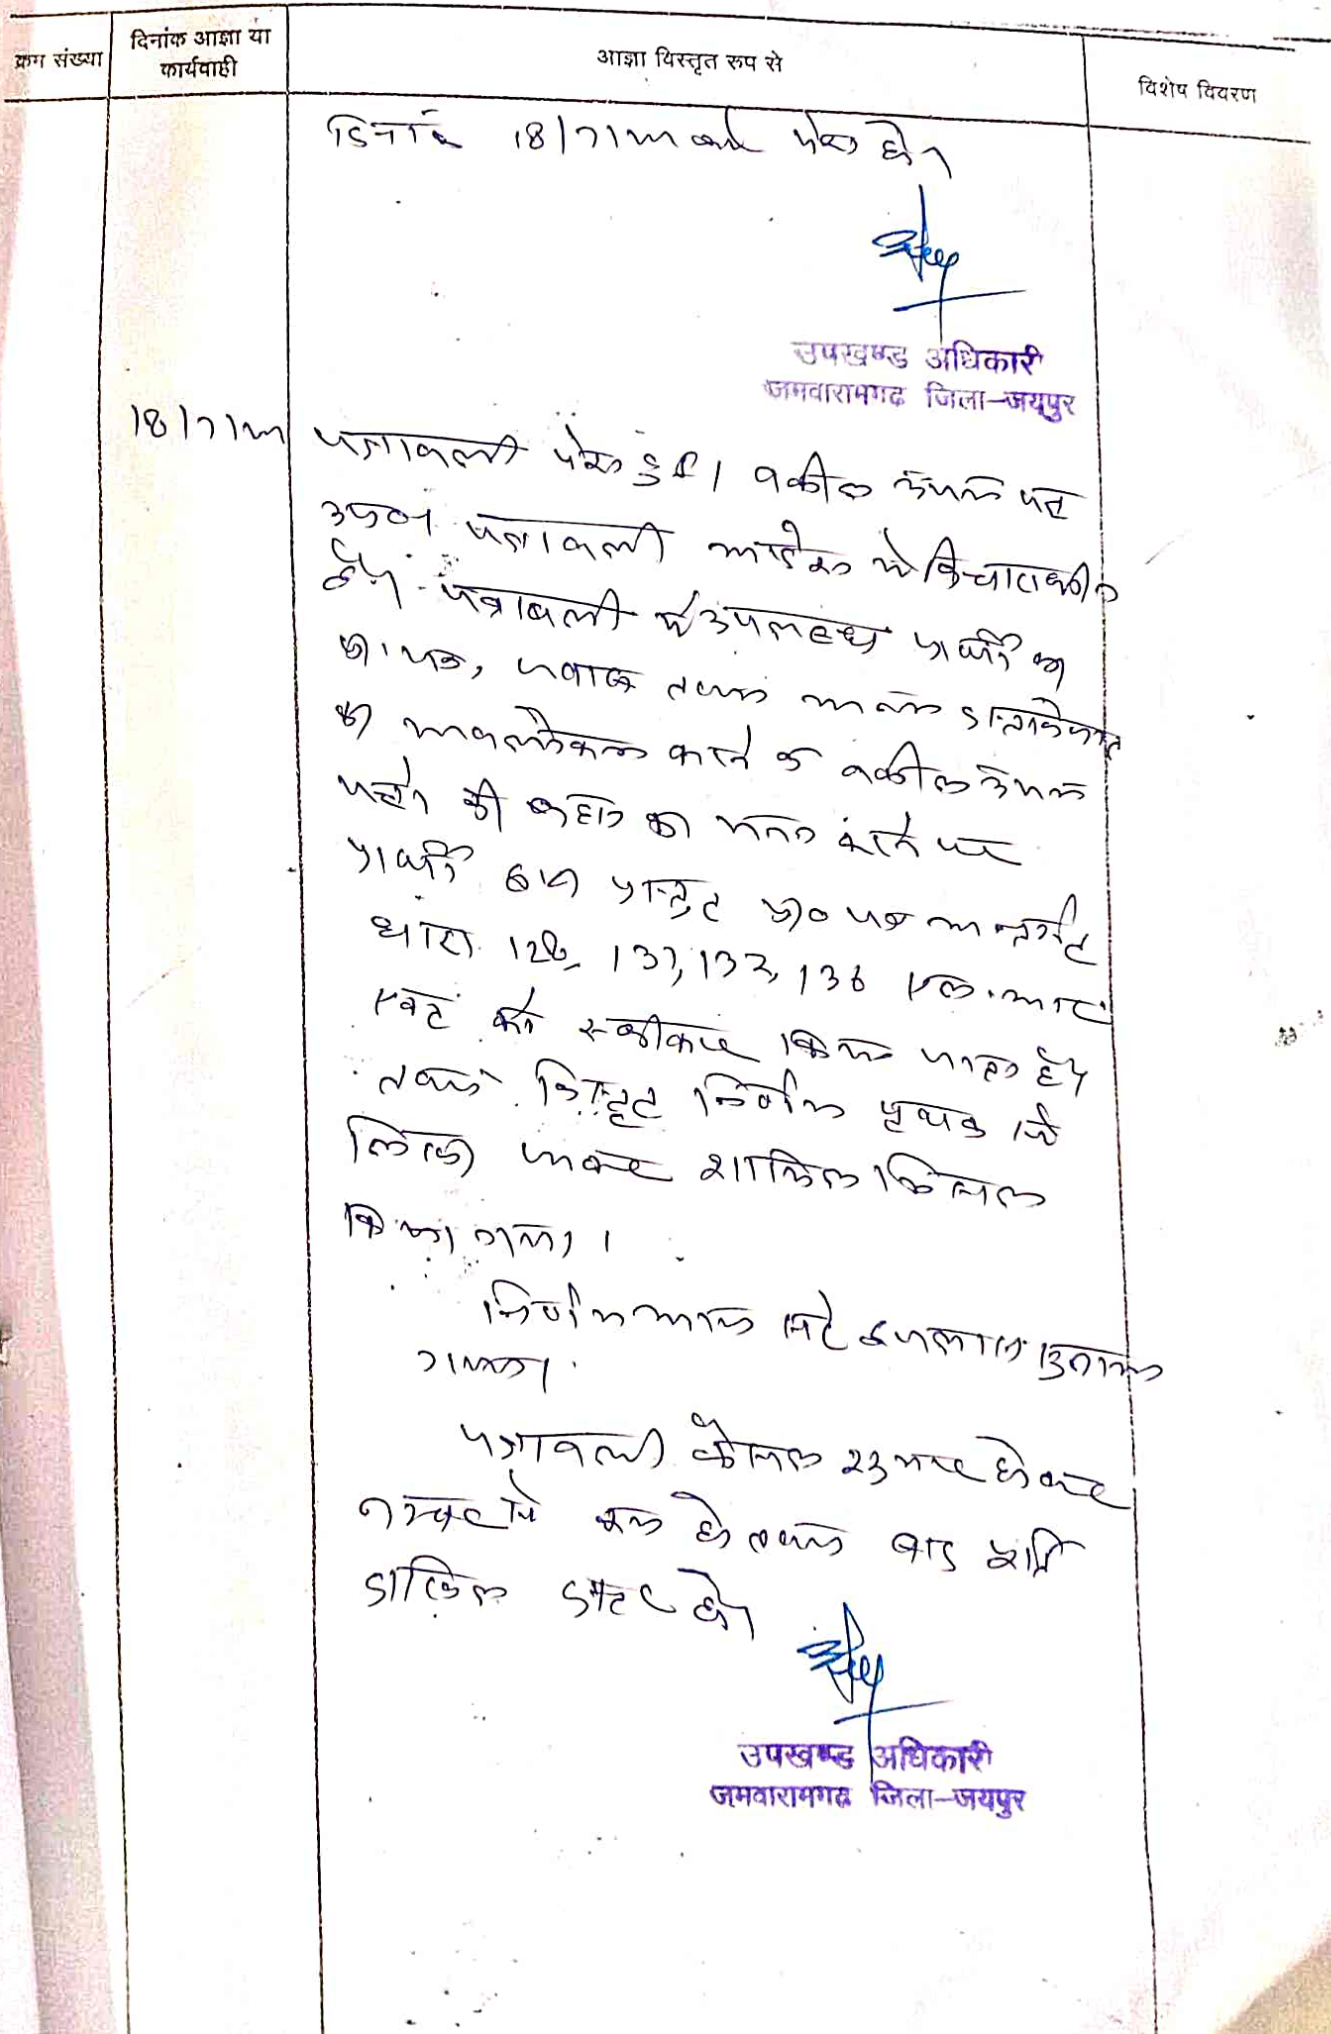 क्रम संख्या
दिनांक आज्ञा या
कार्यवाही
आज्ञा विस्तृत रुप से
विशेष विवरण
दिनांक 18/7/ को पेश हो।
उपखण्ड अधिकारी
जमवारामगढ जिला-जयपुर
18/7/
पत्रावली पेश हुई। वकील उभय पक्ष
उप०। पत्रावली आदेश में विचाराधीन
है। पत्रावली में उपलब्ध प्रार्थी का
प्रा. पत्र, जवाब तथा अन्य दस्तावेजात
का अवलोकन करने व वकील उभय
पक्षों की बहस का मनन करने पर
प्रार्थी द्वारा प्रस्तुत प्रा० पत्र अन्तर्गत
धारा 128, 131, 132, 136 एल.आर.
एक्ट को स्वीकार किया जाता है।
तथा विस्तृत निर्णय पृथक से
लिखा जाकर शामिल मिसल
किया गया।
निर्णय आज सरे इजलास सुनाया
गया।
पत्रावली फैसल शुमार होकर
नम्बर से कम हो तथा बाद पूर्ति
दाखिल दफ्तर हो।
उपखण्ड अधिकारी
जमवारामगढ जिला-जयपुर